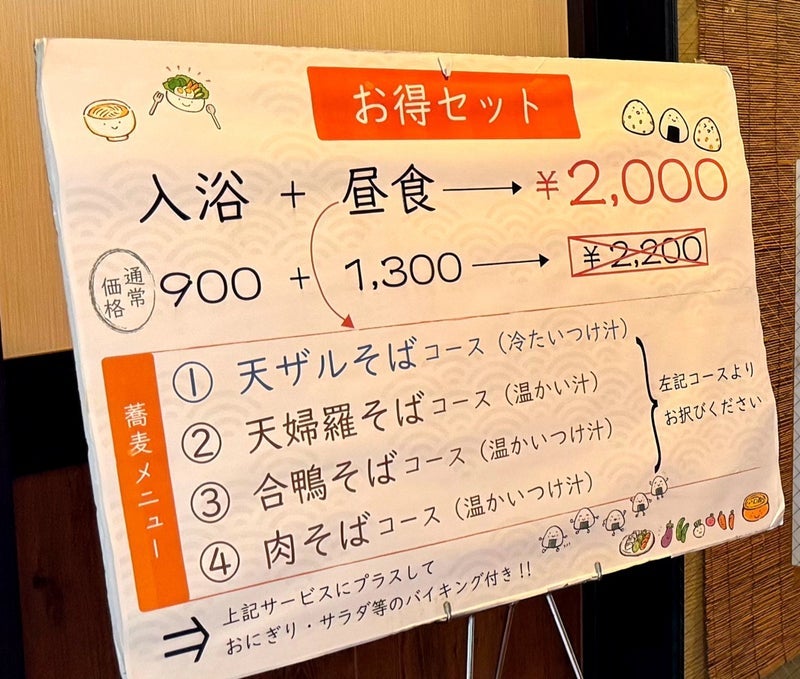 お得セット
入浴 + 昼食 → ¥2,000
通常価格 900 + 1,300 → ¥2,200
蕎麦メニュー
① 天ザルそばコース(冷たいつけ汁)
② 天婦羅そばコース(温かい汁)
③ 合鴨そばコース(温かいつけ汁)
④ 肉そばコース(温かいつけ汁)
左記コースより
お択びください
⇒ 上記サービスにプラスして
おにぎり・サラダ等のバイキング付き!!